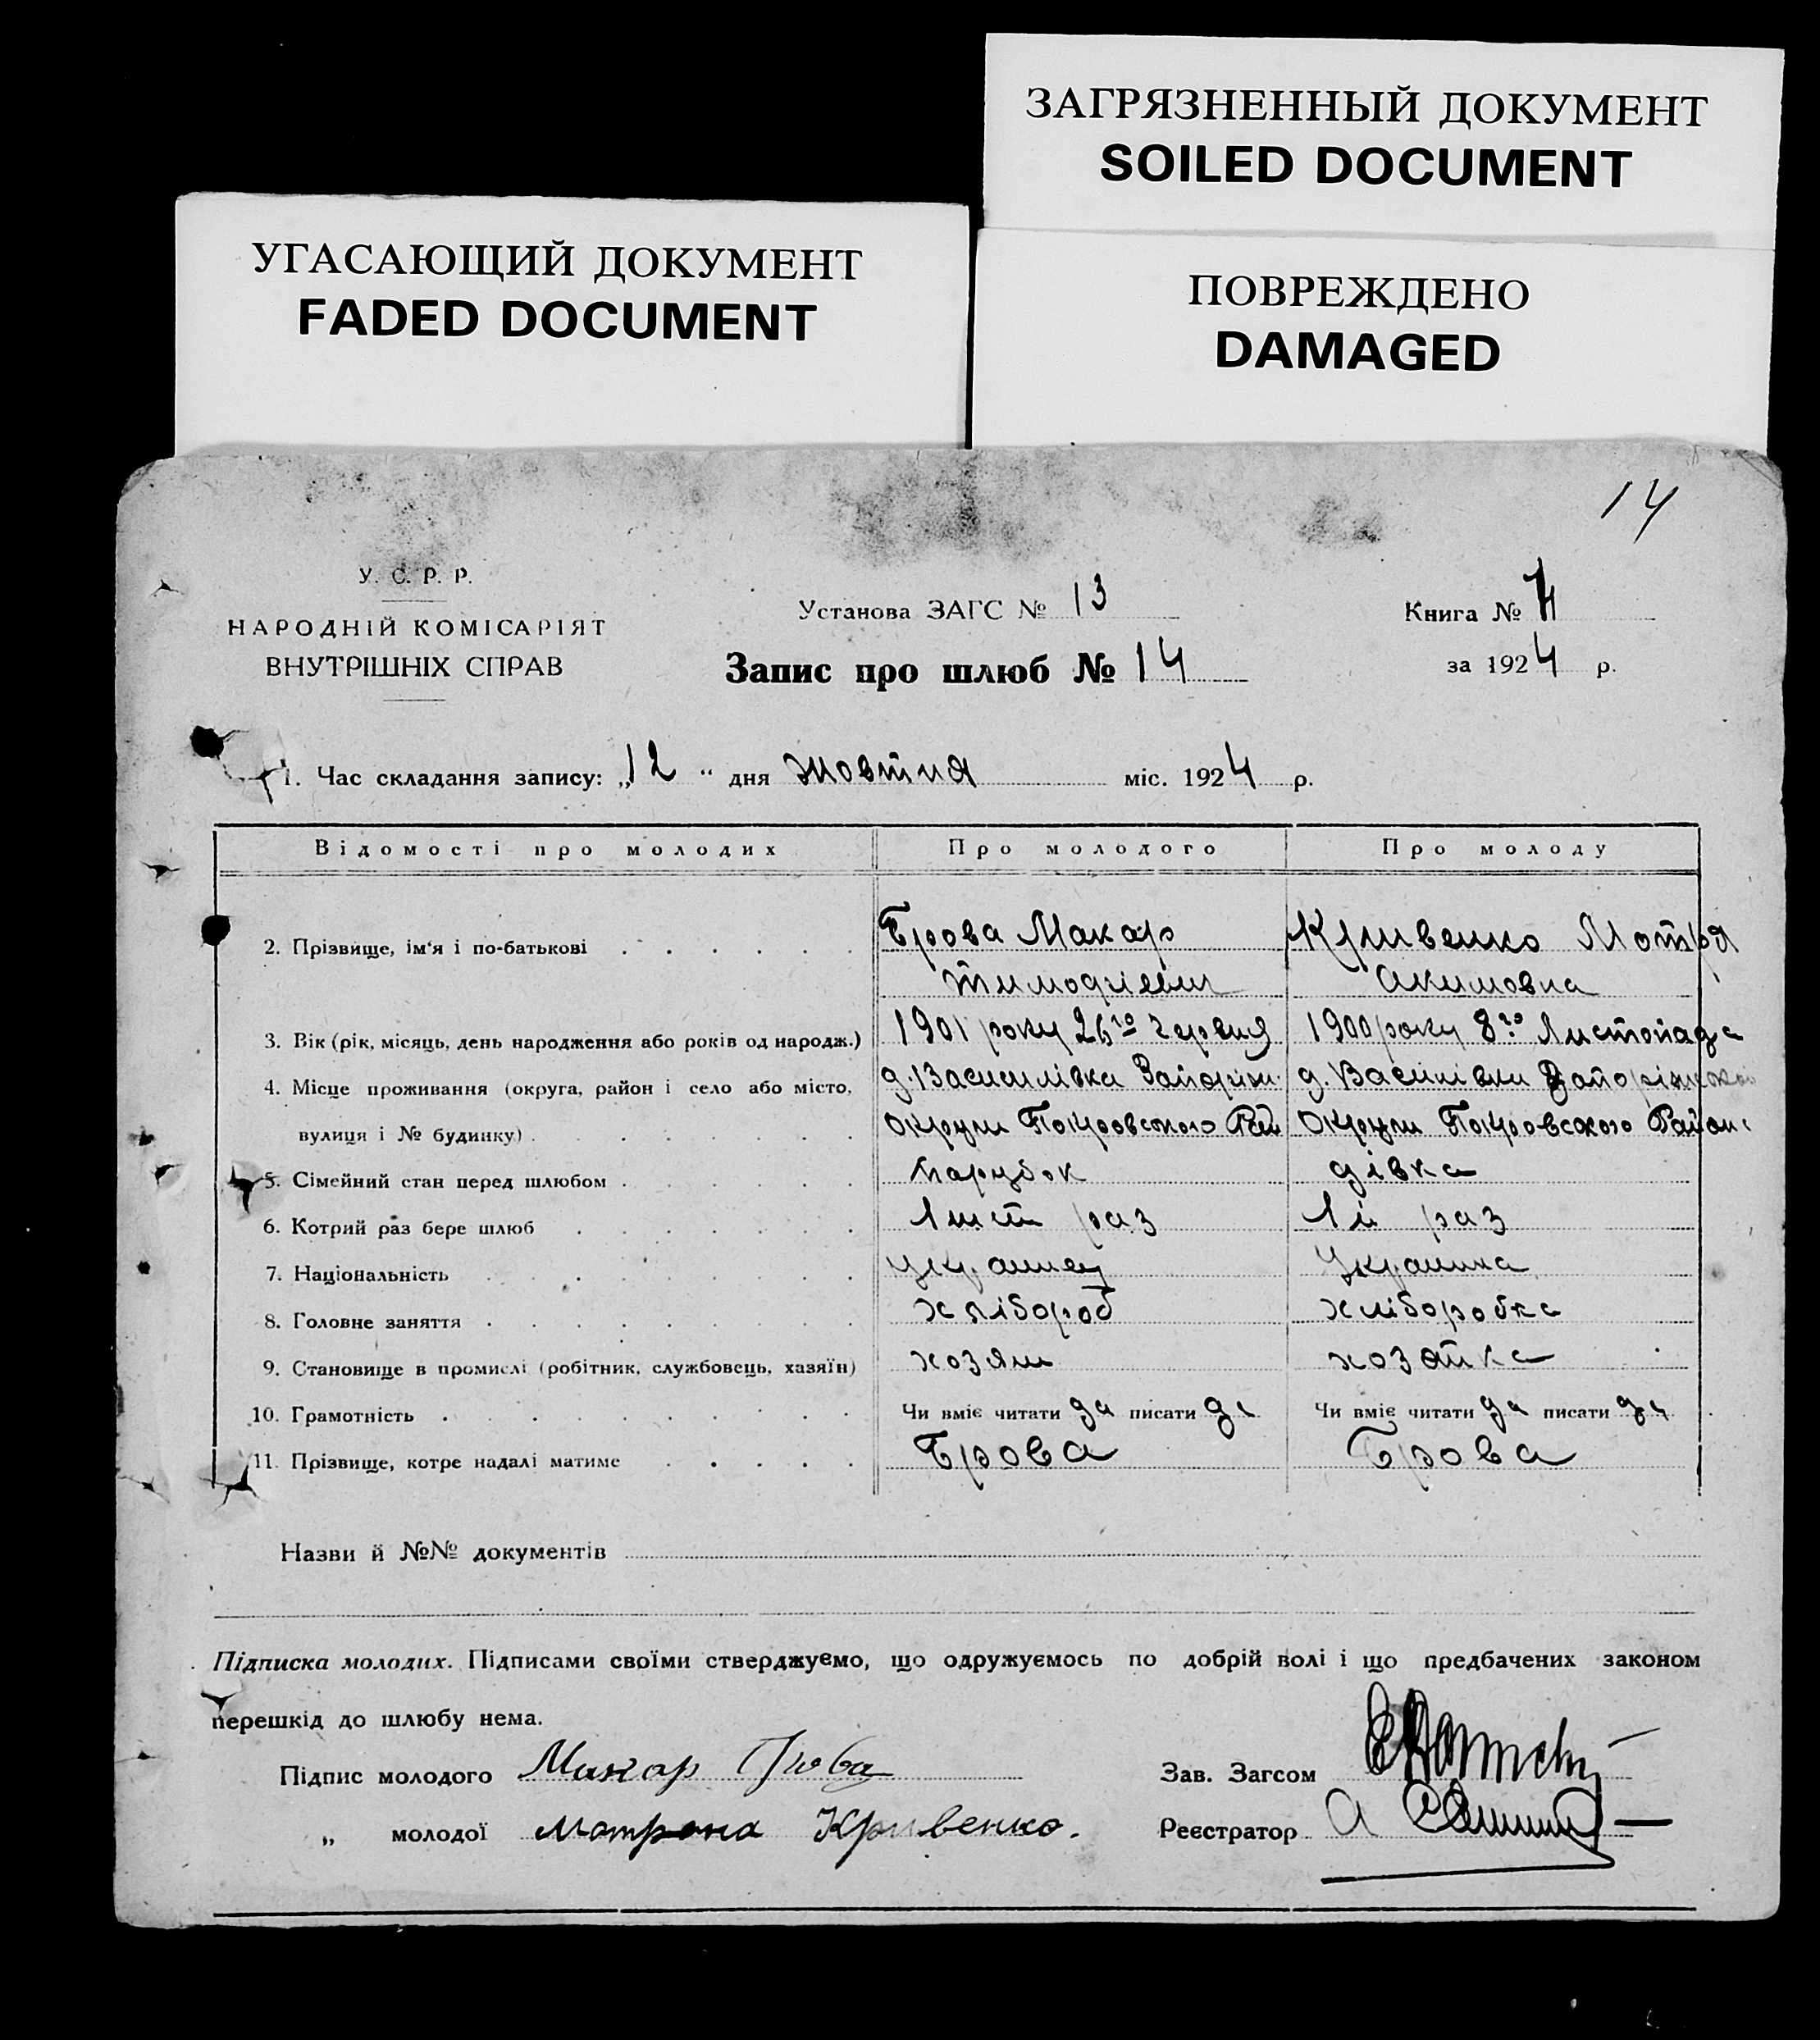 ЗАГРЯЗНЕННЫЙ ДОКУМЕНТ
SOILED DOCUMENT
УГАСАЮЩИЙ ДОКУМЕНТ
FADED DOCUMENT
ПОВРЕЖДЕНО
DAMAGED
14
У. С. Р. Р.
НАРОДНІЙ КОМІСАРІЯТ
ВНУТРІШНІХ СПРАВ
Установа ЗАГС № 13
Запис про шлюб № 14
Книга №
за 1924 р.
1. Час складання запису: „12“ дня Жовтня міс. 1924 р.
Відомості про молодих Про молодого Про молоду
2. Прізвище, ім'я і по-батькові Брова Макар Кривенко Мотря
Тимофіевич Акимовна
3. Вік (рік, місяць, день народження або років од народж.) 1901 року 26го червня 1900 року 8го Листопада
4. Місце проживання (округа, район і село або місто, д. Василівка Запоріж. д. Василівки Запоріжської
вулиця і № будинку) Округи Покровського Рай Округи Покровського Району
5. Сімейний стан перед шлюбом Парубок дівка
6. Котрий раз бере шлюб раз 1й раз
7. Національність Украинец Украинка
8. Головне заняття хлібороб хліборобка
9. Становище в промислі (робітник, службовець, хазяїн) хозяин хозяйка
10. Грамотність Чи вміє читати да писати да Чи вміє читати да писати да
11. Прізвище, котре надалі матиме Брова Брова
Назви й №№ документів
Підписка молодих. Підписами своїми стверджуємо, що одружуємось по добрій волі і що предбачених законом
перешкід до шлюбу нема.
Підпис молодого Макар Брова Зав. Загсом
„ молодої Мотрона Кривенко. Реєстратор А